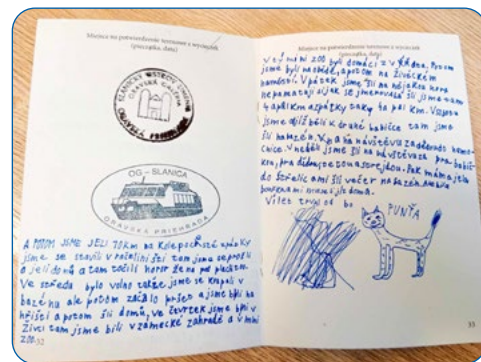 Miejsce na potwierdzenie terenowe z wycieczek
(pieczątka, data)
SLANICKÝ OSTROV UMENIA
ORAVSKÁ GALÉRIA
OG-SLANICA
ORAVSKÁ PRIEHRADA
A POTOM JSME JELI 70km na kole pochsté
jsme se stavili v
a jeli domů a tam točili horor ženo pod plachtou.
Ve středu bylo volno takže jsme se koupali v
bazénu ale potom začalo pršet a jsme byli na
hřišti a potom šli domů, ve čtvrtek jsme byli v
Živci tam jsme byli v zámecké zahradě a v mini
zoo.
32
Miejsce na potwierdzenie terenowe z wycieczek
(pieczątka, data)
V tý mini zoo byli domácí zvířátka. Potom
jsme byli na obědě, a potom na Živěckém
náměstí. V pátek jsme šli na nějakou horu
nepamatuji si jak se jmenovala šli jsme tam
4 a půl km a zpátky taky 4 a půl km. V sobotu
jsme běželi k druhé babičce tam jsme
šli na bazén. a na návštěvu za dědou do nemo-
cnice. V neděli jsme šli na návštěvu za pra-babič-
kou, pra-dědou, tetou a strejdou. Pak máma jela
do Střelic a mi šli večer na bazén.
jsme jeli domů.
Výlet trval od
PUNŤA
33